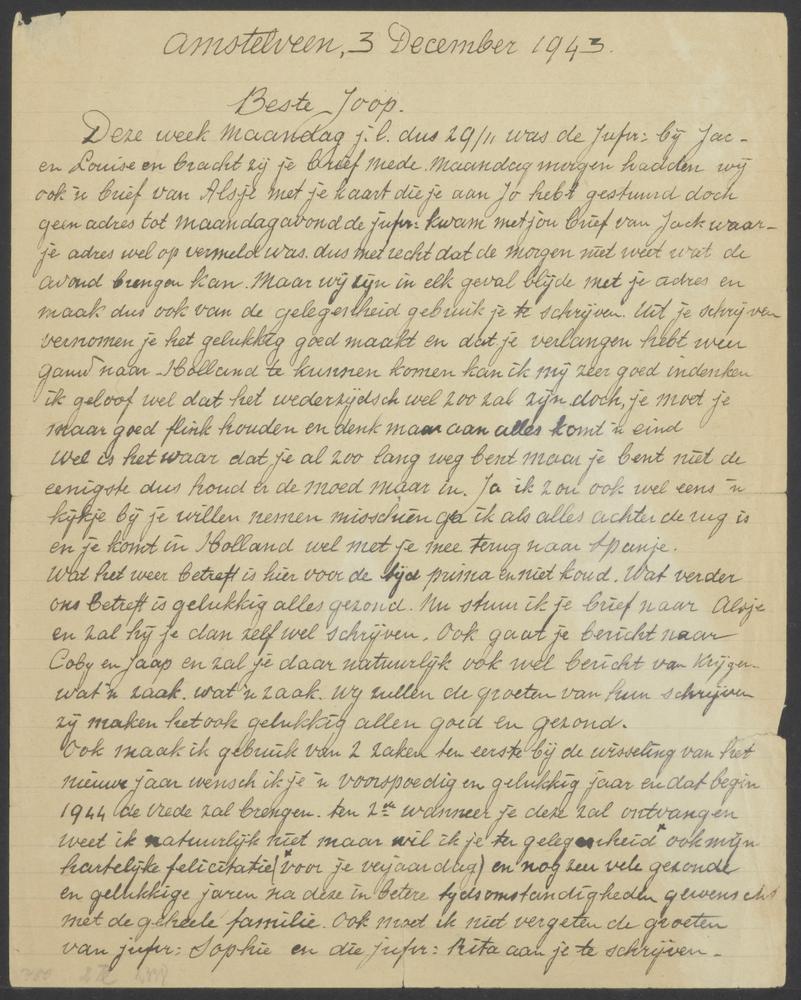 Amstelveen, 3 December 1943.
Beste Joop.
Deze week Maandag j.l. dus 29/11 was de Jufr: bij Jac-
en Louise en bracht zij je brief mede. Maandag morgen hadden wij
ook 'n brief van Alsje met je kaart die je aan Jo hebt gestuurd doch
geen adres tot Maandagavond de jufr: kwam met jou brief van Jack waar-
je adres wel op vermeld was. dus met recht dat de morgen niet weet wat de
avond brengen kan. Maar wij zijn in elk geval blijde met je adres en
maak dus ook van de gelegenheid gebruik je te schrijven. Uit je schrijven
vernomen je het gelukkig goed maakt en dat je verlangen hebt weer
gauw naar Holland te kunnen komen kan ik mij zeer goed indenken
ik geloof wel dat het wederzijdsch wel zoo zal zijn doch, je moet je
maar goed flink houden en denk maar aan alles komt 'n eind
Wel is het waar dat je al zoo lang weg bent maar je bent niet de
eenigste dus houd er de moed maar in. Ja ik zou ook wel eens 'n
kijkje bij je willen nemen misschien ga ik als alles achter de rug is
en je komt in Holland wel met je mee terug naar Spanje.
Wat het weer betreft is hier voor de tijd prima en niet koud. Wat verder
ons betreft is gelukkig alles gezond. Nu stuur ik je brief naar Alsje
en zal hij je dan zelf wel schrijven. Ook gaat je bericht naar
Coby en Jaap en zal je daar natuurlijk ook wel bericht van krijgen
wat 'n zaak. wat 'n zaak. Wij zullen de groeten van hun schrijven
zij maken het ook gelukkig allen goed en gezond.
Ook maak ik gebruik van 2 zaken ten eerste bij de wisseling van het
nieuwe jaar wensch ik je 'n voorspoedig en gelukkig jaar en dat begin
1944 de vrede zal brengen. ten 2de wanneer je deze zal ontvangen
weet ik natuurlijk niet maar wil ik je ter gelegenheid ook mijn
hartelijke felicitatie (voor je verjaardag) en nog zeer vele gezonde
en gelukkige jaren na deze in betere tijdsomstandigheden gewenscht
met de geheele familie. Ook moet ik niet vergeten de groeten
van jufr: Sophie en die jufr: Rita aan je te schrijven -